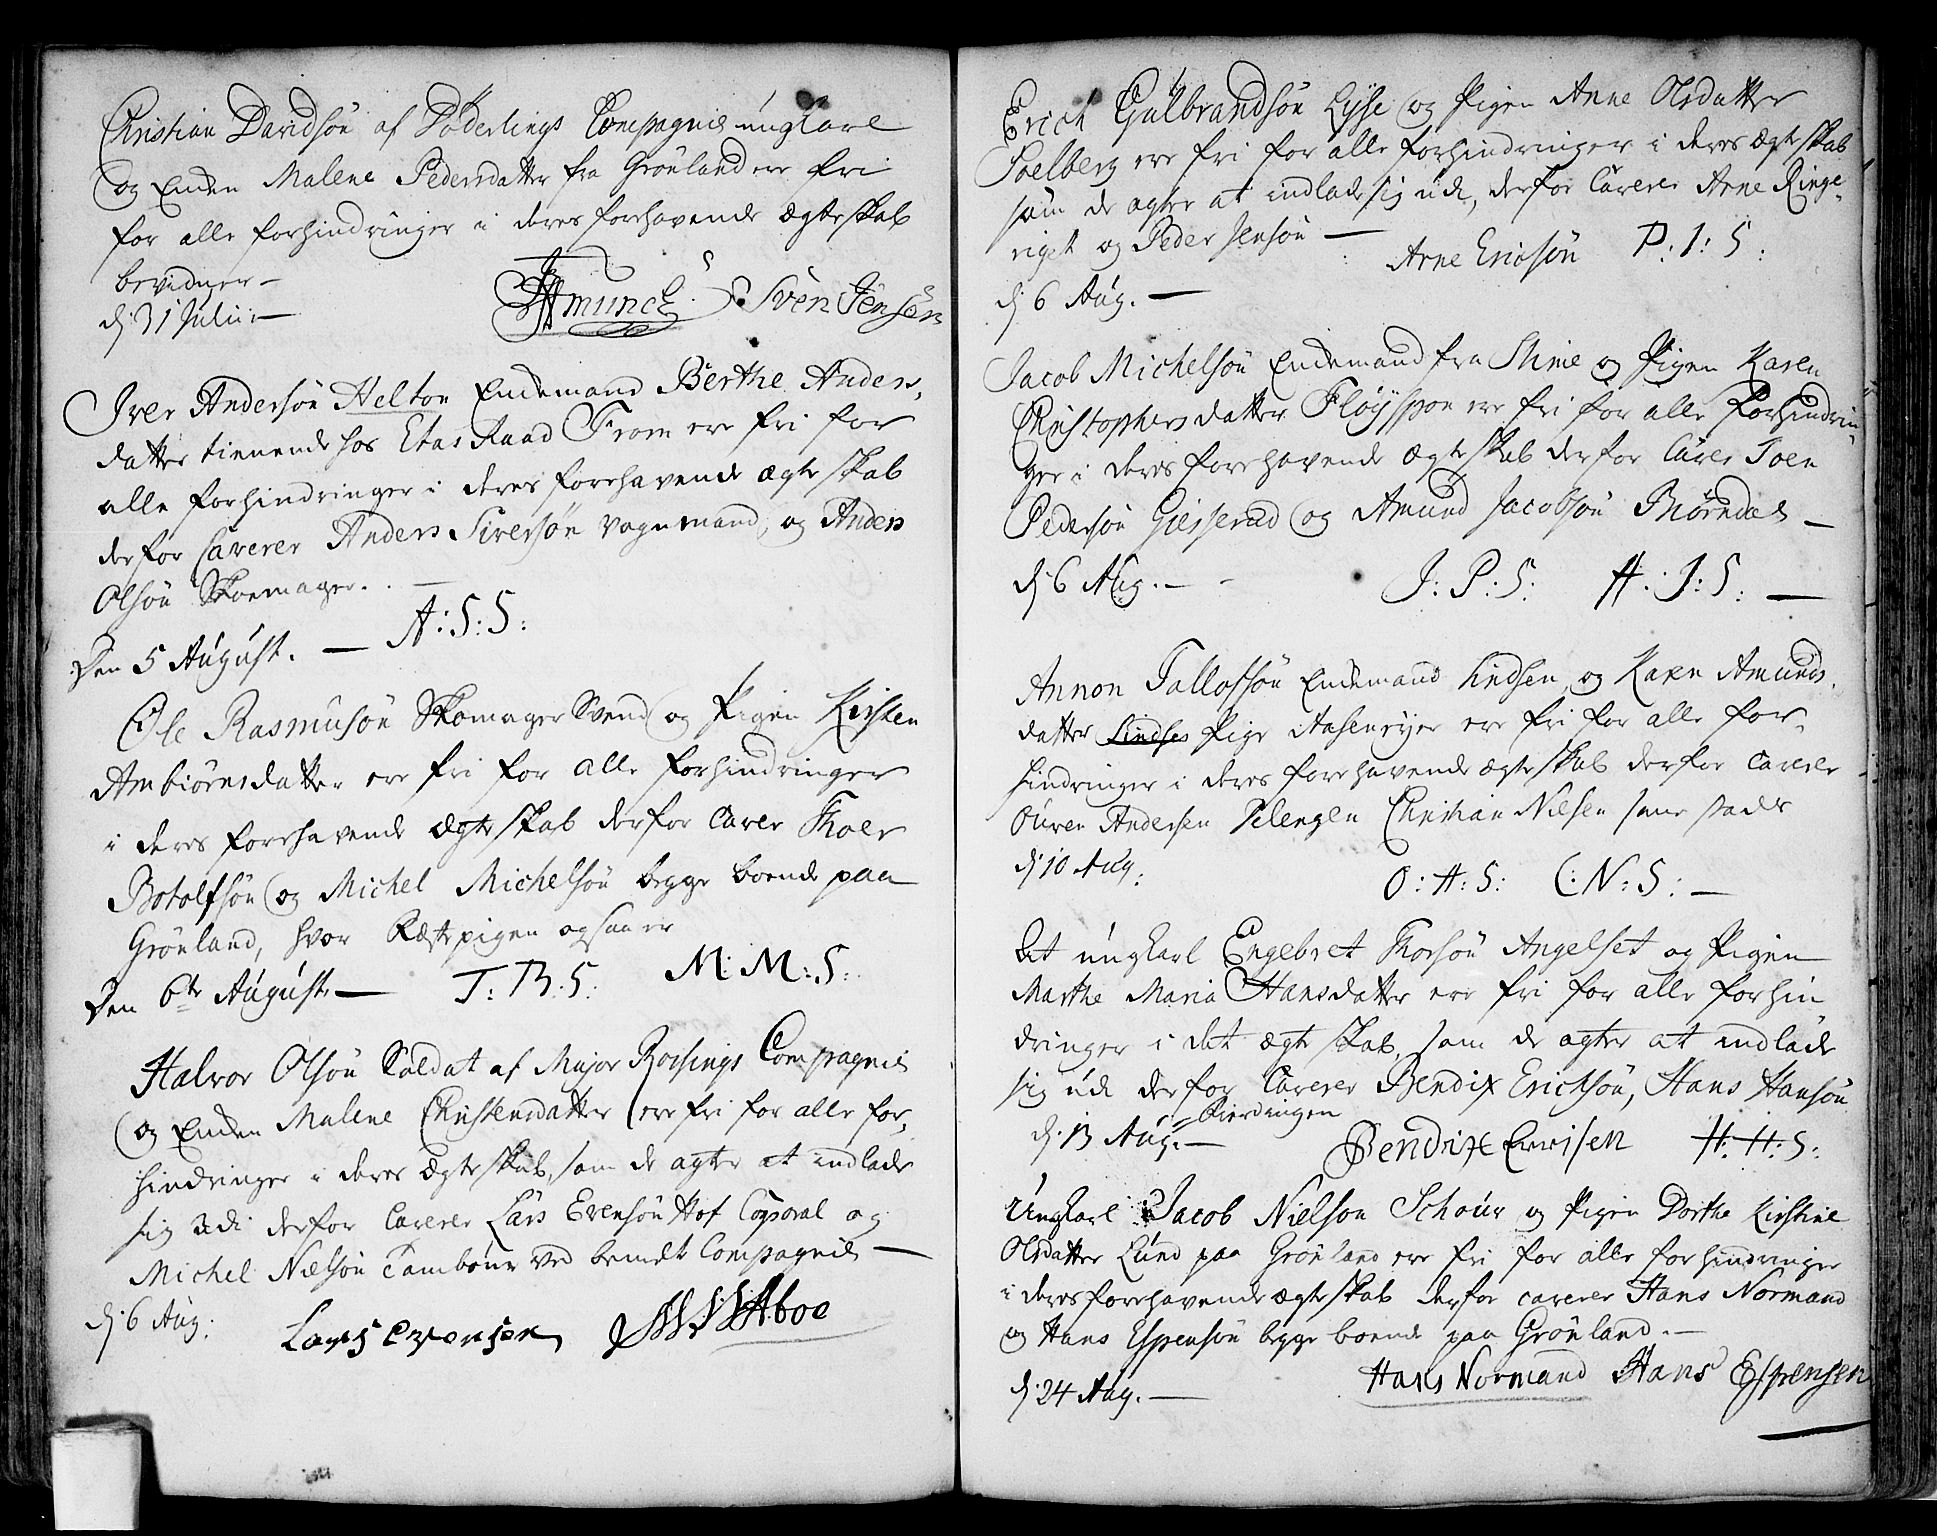 Christian Davidsön af Döderlings Compagnie ungkarl
og Enken Malene Pedersdatter fra Grönland ere fri
for alle forhindringer i deres forehavende ægteskab
bevidner —
d: 31 Julii: —
Munch. Sven Jensön
Iver Andersön Helton Enkemand Berthe Anders,
datter tienende hos Etas Raad From ere fri for
alle forhindringer i deres forehavende ægteskab
derfor Caverer Anders Siversön vognmand, og Anders
Olsön Skoemager. —
Den 5 August. — A: S: S:
Ole Rasmusön Skomager Svend og Pigen Kirsten
Ambiörnsdatter ere fri for alle forhindringer
i deres forehavende ægteskab derfor Caver Thoer
Botolfsön og Michel Michelsön begge boende paa
Grönland, hvor Fæstepigen ogsaa er
Den 6te August — T: B: S: M: M: S:
Halvor Olsön Soldat af Major Rossings Compagnie
og Enken Malene Christensdatter ere fri for alle for,
hindringer i deres Ægteskab, som de agter at indlade
sig udi derfor Caverer Lars Evensön Hof Corporal og
Michel Nielsön Tambour ved bemelte Compagnie —
d: 6 Aug: Lars Evensen Aboe
Erich Gulbrandsön Lysse og Pigen Anne Olsdatter
Soelberg ere fri for alle forhindringer i deres ægteskab
som de agter at indlade sig udi, derfor Caverer Arne Ringe-
riget og Peder Jensön —
d: 6 Aug. — Arne Ericsön P: I: S:
Jacob Michelsön Enkemand fra og Pigen Karen
Christophersdatter Flöysspon ere fri for alle Forhindrin
ger i deres forehavende ægteskab derfor Caver Joen
Pedersön Giesserud og Amund Jacobsön Biörndal —
d: 6 Aug. — J: P: S: A: J: S: —
Annon Tallofsön Enkemand Lindsen, og Karn Amunds,
datter Lindses Pige Aasenryer ere fri for alle for
hindringer i deres forehavende ægteskab derfor Caverer
Ouven Andersen Pelengen Christian Nielsen samestads
d: 10 Aug: O: A: S: C: N: S: —
At ungkarl Engebret Thorsön Angelset og Pigen
Marthe Maria Hansdatter ere fri for alle forhin
dringer i det ægteskab, som de agter at indlade
sig udi derfor Caverer Bendix Ericksön, Hans Hansön
Pierdingen
d: 13 Aug. — Bendix Ericsen H: H: S:
Ungkarl Jacob Nielson Schour og Pigen Dorthe Kirstine
Olsdatter Lund paa Grönland ere fri for alle forhindringer
i deres forehavende ægteskab derfor caverer Hans Normand
og Hans Espensön begge boende paa Grönland. —
d: 24 Aug. — Hans Normand Hans Espensen